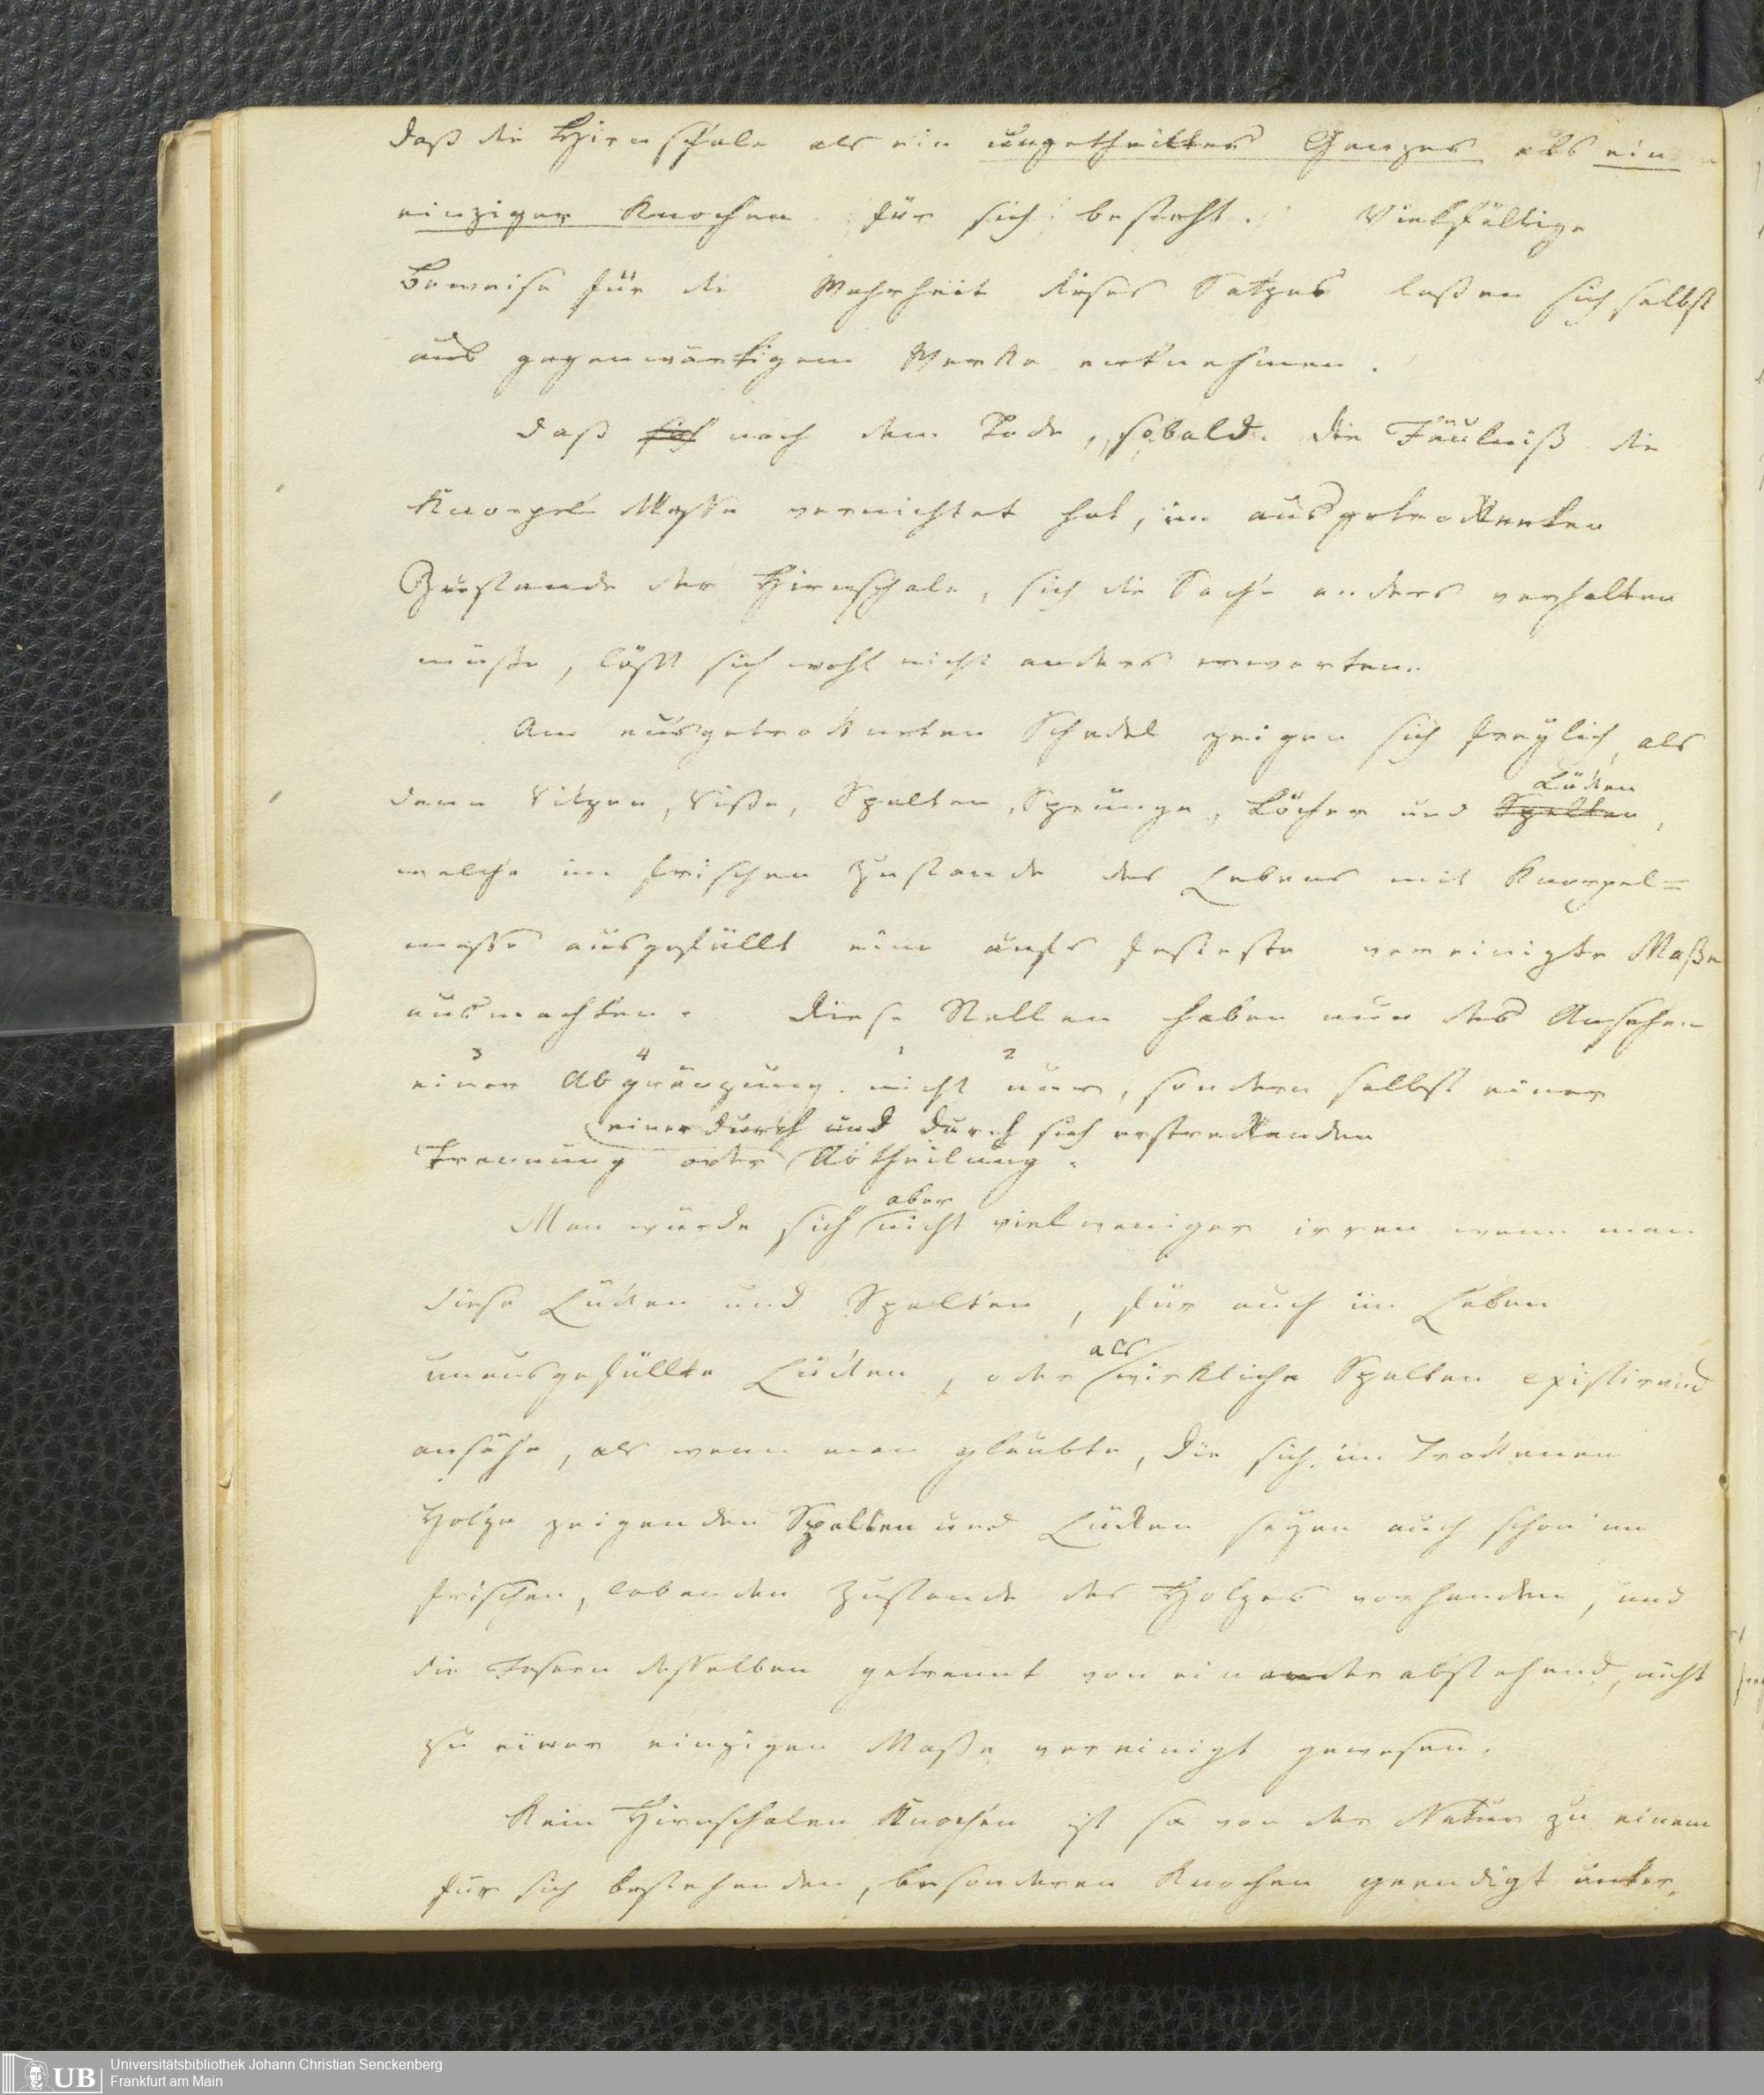 daß die Hirnschale als ein ungetheiltes Ganzes als ein
einziger Knochen für sich besteht. Vielfältige
Beweise für die Wahrheit dieses Satzes laßen sich selbst
aus gegenwärtigem Werke entnehmen.
Daß sich nach dem Tode, sobald die Fäulniß die
Knorpel Masse vernichtet hat, im ausgetrockneten
Zustande der Hirnschale, sich die Sache anders verhalten
müße, läßt sich wohl nicht anders erwarten.
Am ausgetrockneten Schedel zeigen sich freylich als
Lücken
dann Ritzen, Riße, Spalten, Sprünge, Löcher und Spalten,
welche im frischen Zustande des Lebens mit Knorpel=
masse ausgefüllt eine aufs festeste vereinigte Maße
ausmachten. Diese Stellen haben nun das Ansehen
3 4 1 2
einer Abgränzung nicht nur, sondern selbst einer
einer durch und durch sich erstreckenden
Trennung oder Abtheilung.
aber
Man würde sich nicht vielweniger irren wenn man
diese Lücken und Spalten, für auch im Leben
als
unausgefüllte Lücken, oder wirkliche Spalten existirend
ansähe, als wenn man glaubte, die sich im Trockenen
Holze zeigenden Spalten und Lücken seyen auch schon im
frischen, lebenden Zustande des Holzes vorhanden, und
die Fasern desselben getrennt von einander abstehend, nicht
zu einer einzigen Maße vereinigt gewesen.
Kein Hirnschalen Knochen ist so von der Natur zu einem
für sich bestehenden, besonderen Knochen geendigt unter,
Universitätsbibliothek Johann Christian Senckenberg
UB Frankfurt am Main